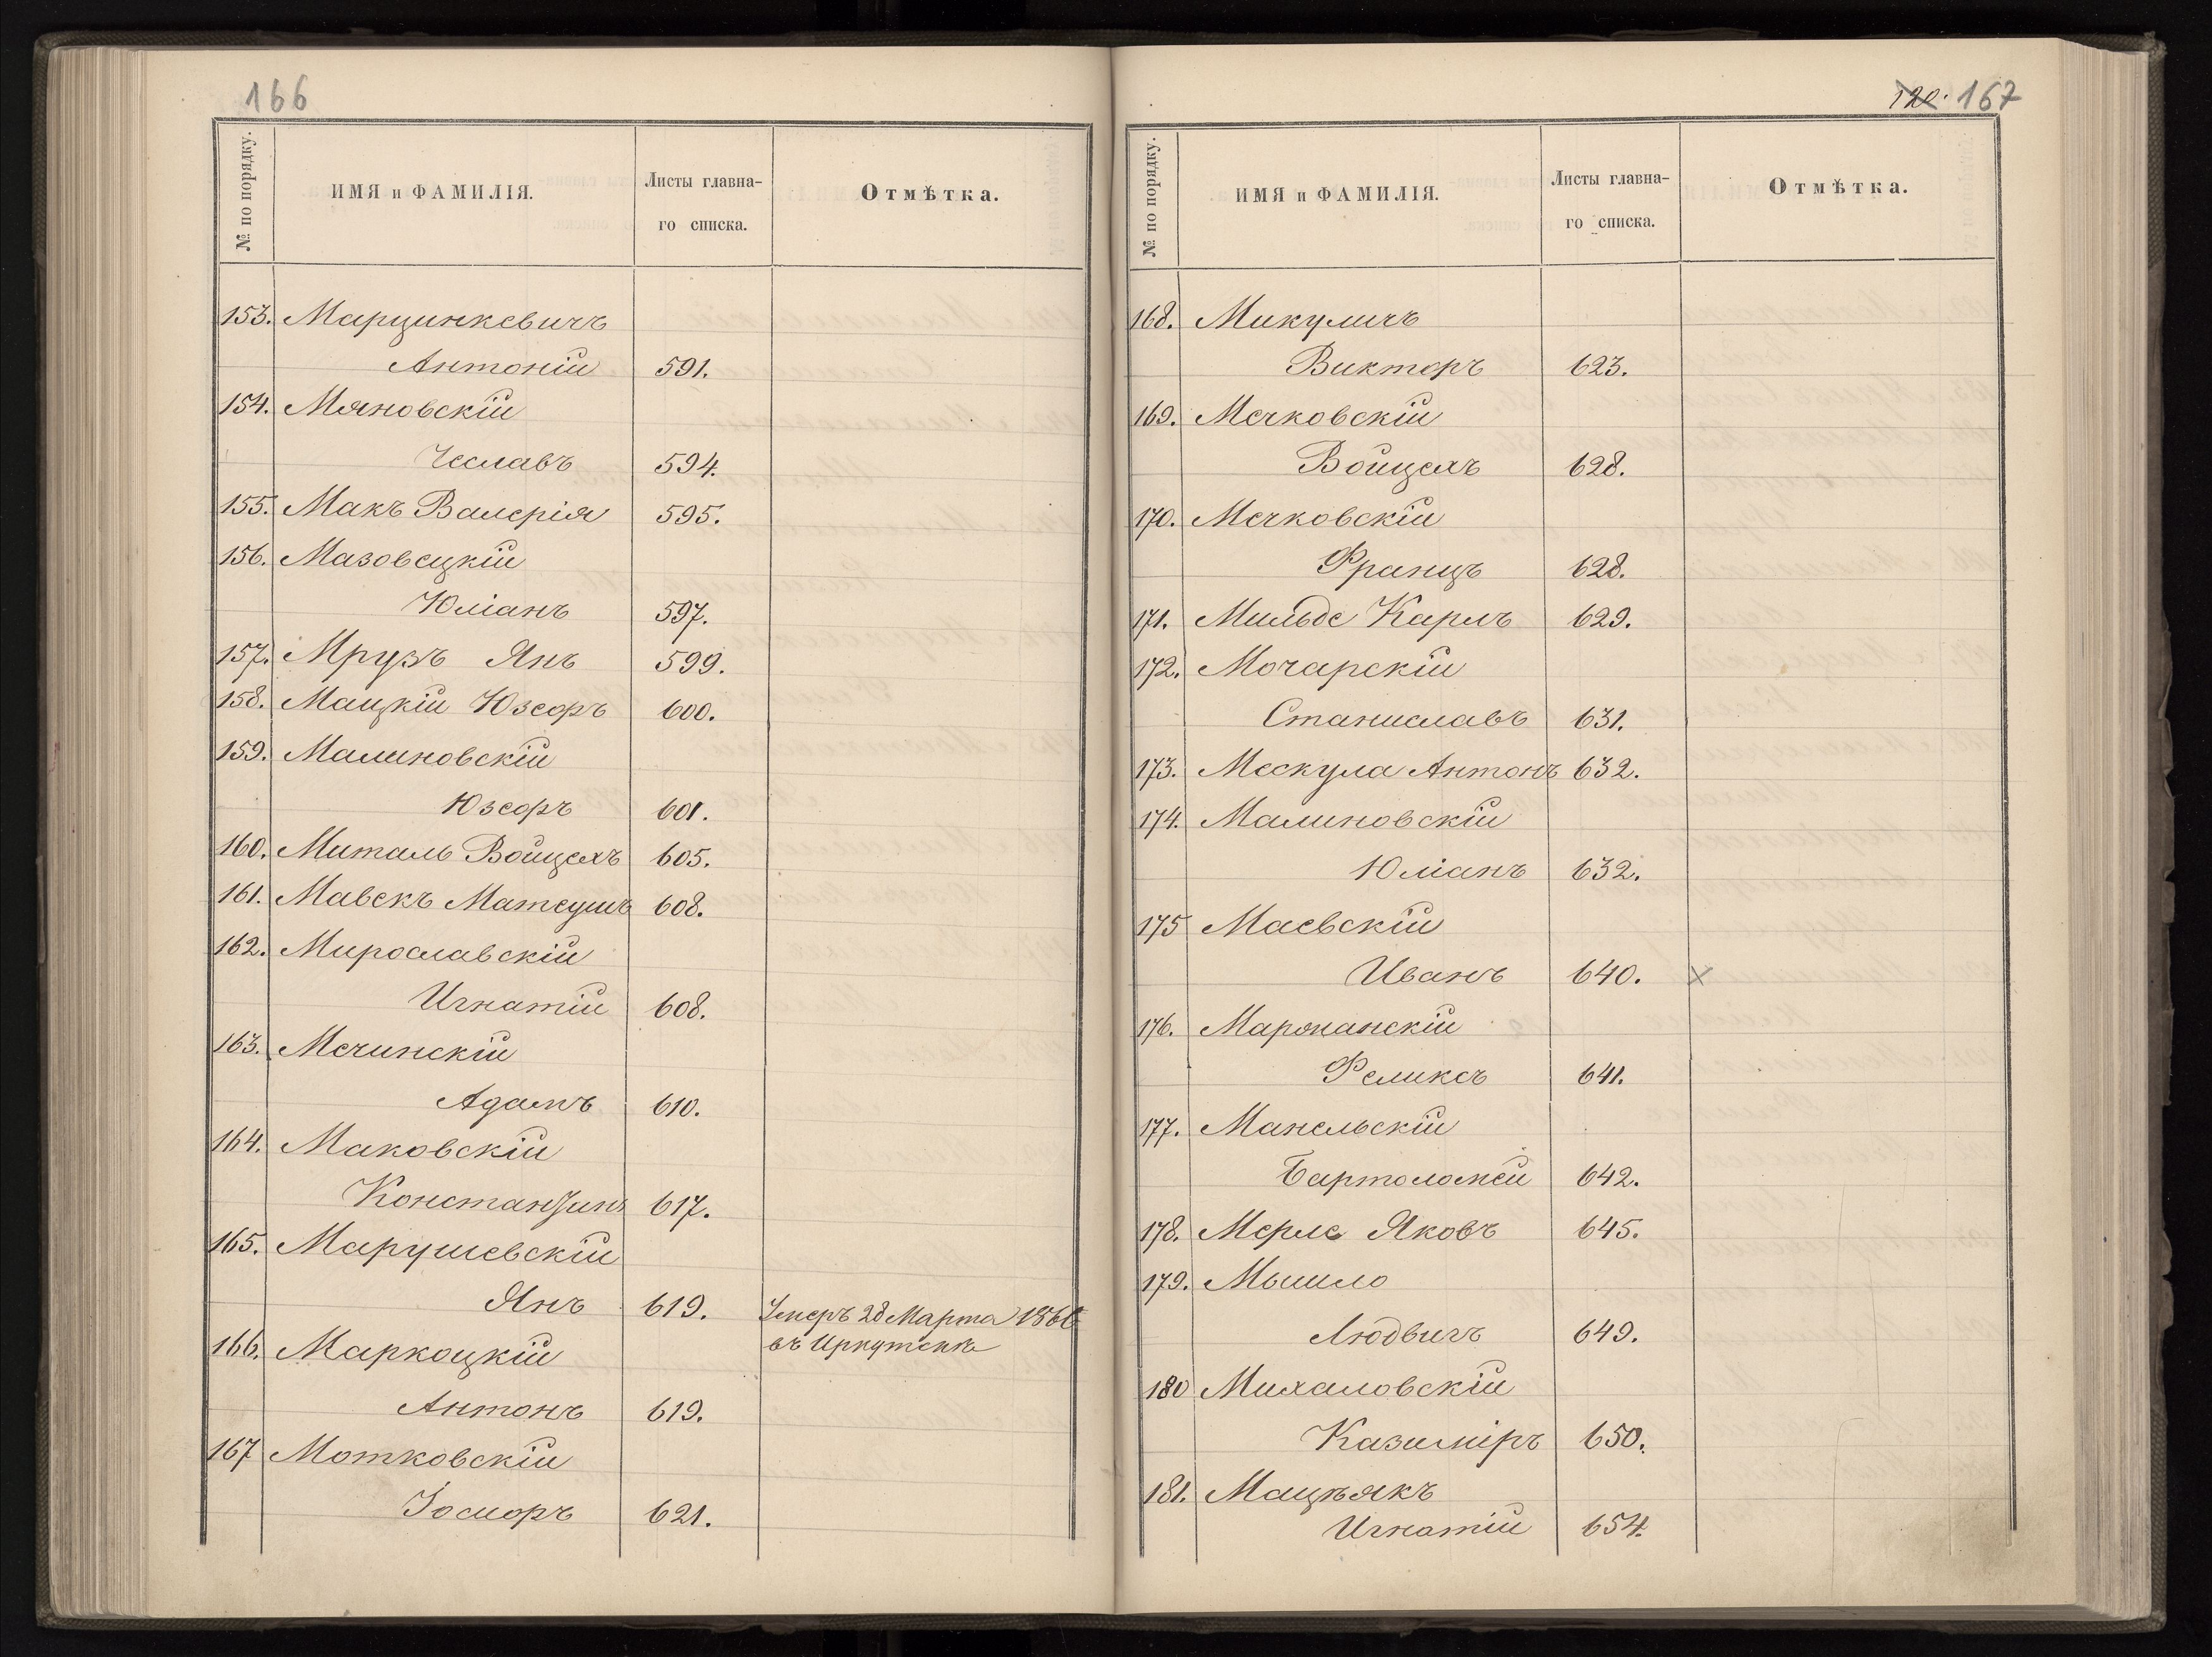 166
№ по порядку.
ИМЯ и ФАМИЛІЯ.
Листы главна-
го списка.
Отмѣтка.
153. Марцинкевичъ
Антоній 591.
154. Мяновскій
Чеславъ 594.
155. Макъ Валерія 595.
156. Мазовецкій
Юліанъ 597.
157. Мрузъ Янъ 599.
158. Мацкій Юзефъ 600.
159. Малиновскій
Юзефъ 601.
160. Миталь Войцехъ 605.
161. Мавекъ Матеушъ 608.
162. Мирославскій
Игнатій 608.
163. Мечинскій
Адамъ 610.
164. Маковскій
Константинъ 617.
165. Марушевскій
Янъ 619. Умеръ 28 Марта 1866
въ Иркутскѣ
166. Маркоцкій
Антонъ 619.
167 Мотковскій
Іосифъ 621.
120. 167
№ по порядку.
ИМЯ и ФАМИЛІЯ.
Листы главна-
го списка.
Отмѣтка.
168. Микуличъ
Викторъ 623.
169. Мечковскій
Войцехъ 628.
170. Мечковскій
Францъ 628.
171. Мильде Карлъ 629.
172. Мочарскій
Станиславъ 631.
173. Мескула Антонъ 632.
174. Малиновскій
Юліанъ 632.
175 Маевскій
Иванъ 640. ×
176. Мароканскій
Феликсъ 641.
177. Манельскій
Бартоломей 642.
178. Мерле Яковъ 645.
179. Мышло
Людвигъ 649.
180 Михаловскій
Казиміръ 650.
181. Мацѣякъ
Игнатій 654.